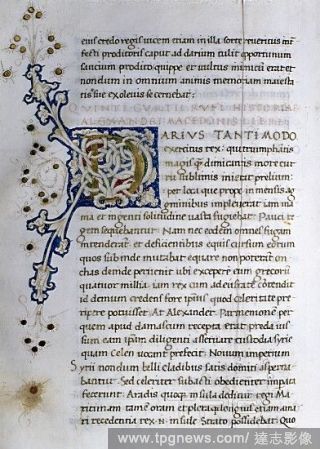 eius credo regis vicem etiam in illa sorte reveritus
fecti proditoris caput ad darium tulit opportunum
sancium prodito quippe et vultus inimici erat et
nondum in omnium animis memoriam maiesta
tis sue exolevisse cernebat:
QUINTI CURTII RUFI HISTORIAE
ALEXANDRI MACEDONIS LIBER
DARIUS TANTI MODO
exercitus rex: qui triumphantis
magis quam dimicantis more cur
ru sublimis inierat prelium:
per loca que prope inmensis ag
minibus impleverat iam ina
nia et ingenti solitudine vasta fugiebat. Pauci re
gem sequebantur. Nam nec eodem omnes fugam
intenderant et deficientibus equis cursum eorum
quos subinde mutabat equare non poterant. On
chas deinde pervenit ubi excepere eum grecorum
quatuor millia: iam rex cum ad eufratem contendit
id demum credens fore ipsius quod celeritate pre
ripere potuisset. At Alexander. Parmenionem per
quem apud damascum recepta erat preda ius
sum eam ipsam diligenti asservare custodia Syrie
quam celen vocant prefecit. Novum imperium
Syri nondum belli cladibus satis domiti asperna
bantur. Sed celeriter subacti obedienter imperata
fecerunt. Aradis quoque insula deditur regi Ma
ritimam tamen oram et pleraque longius etiam a mari
recedentia rex insule Strato possidebat. Quo
www.tpgnews.com/達志影像